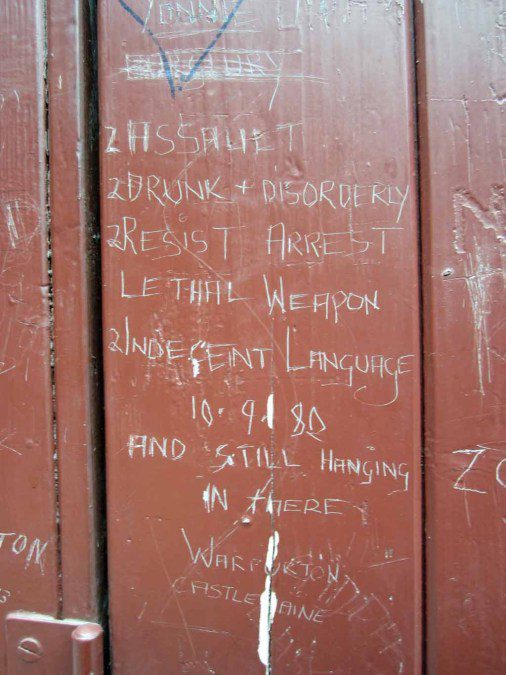 2 ASSAULT
2 DRUNK + DISORDERLY
2 RESIST ARREST
LETHAL WEAPON
2 INDECEINT LANGUAGE
10. 9. 80
AND STILL HANGING
IN THERE
WARBURTON
CASTLEMAINE
TON
ZO